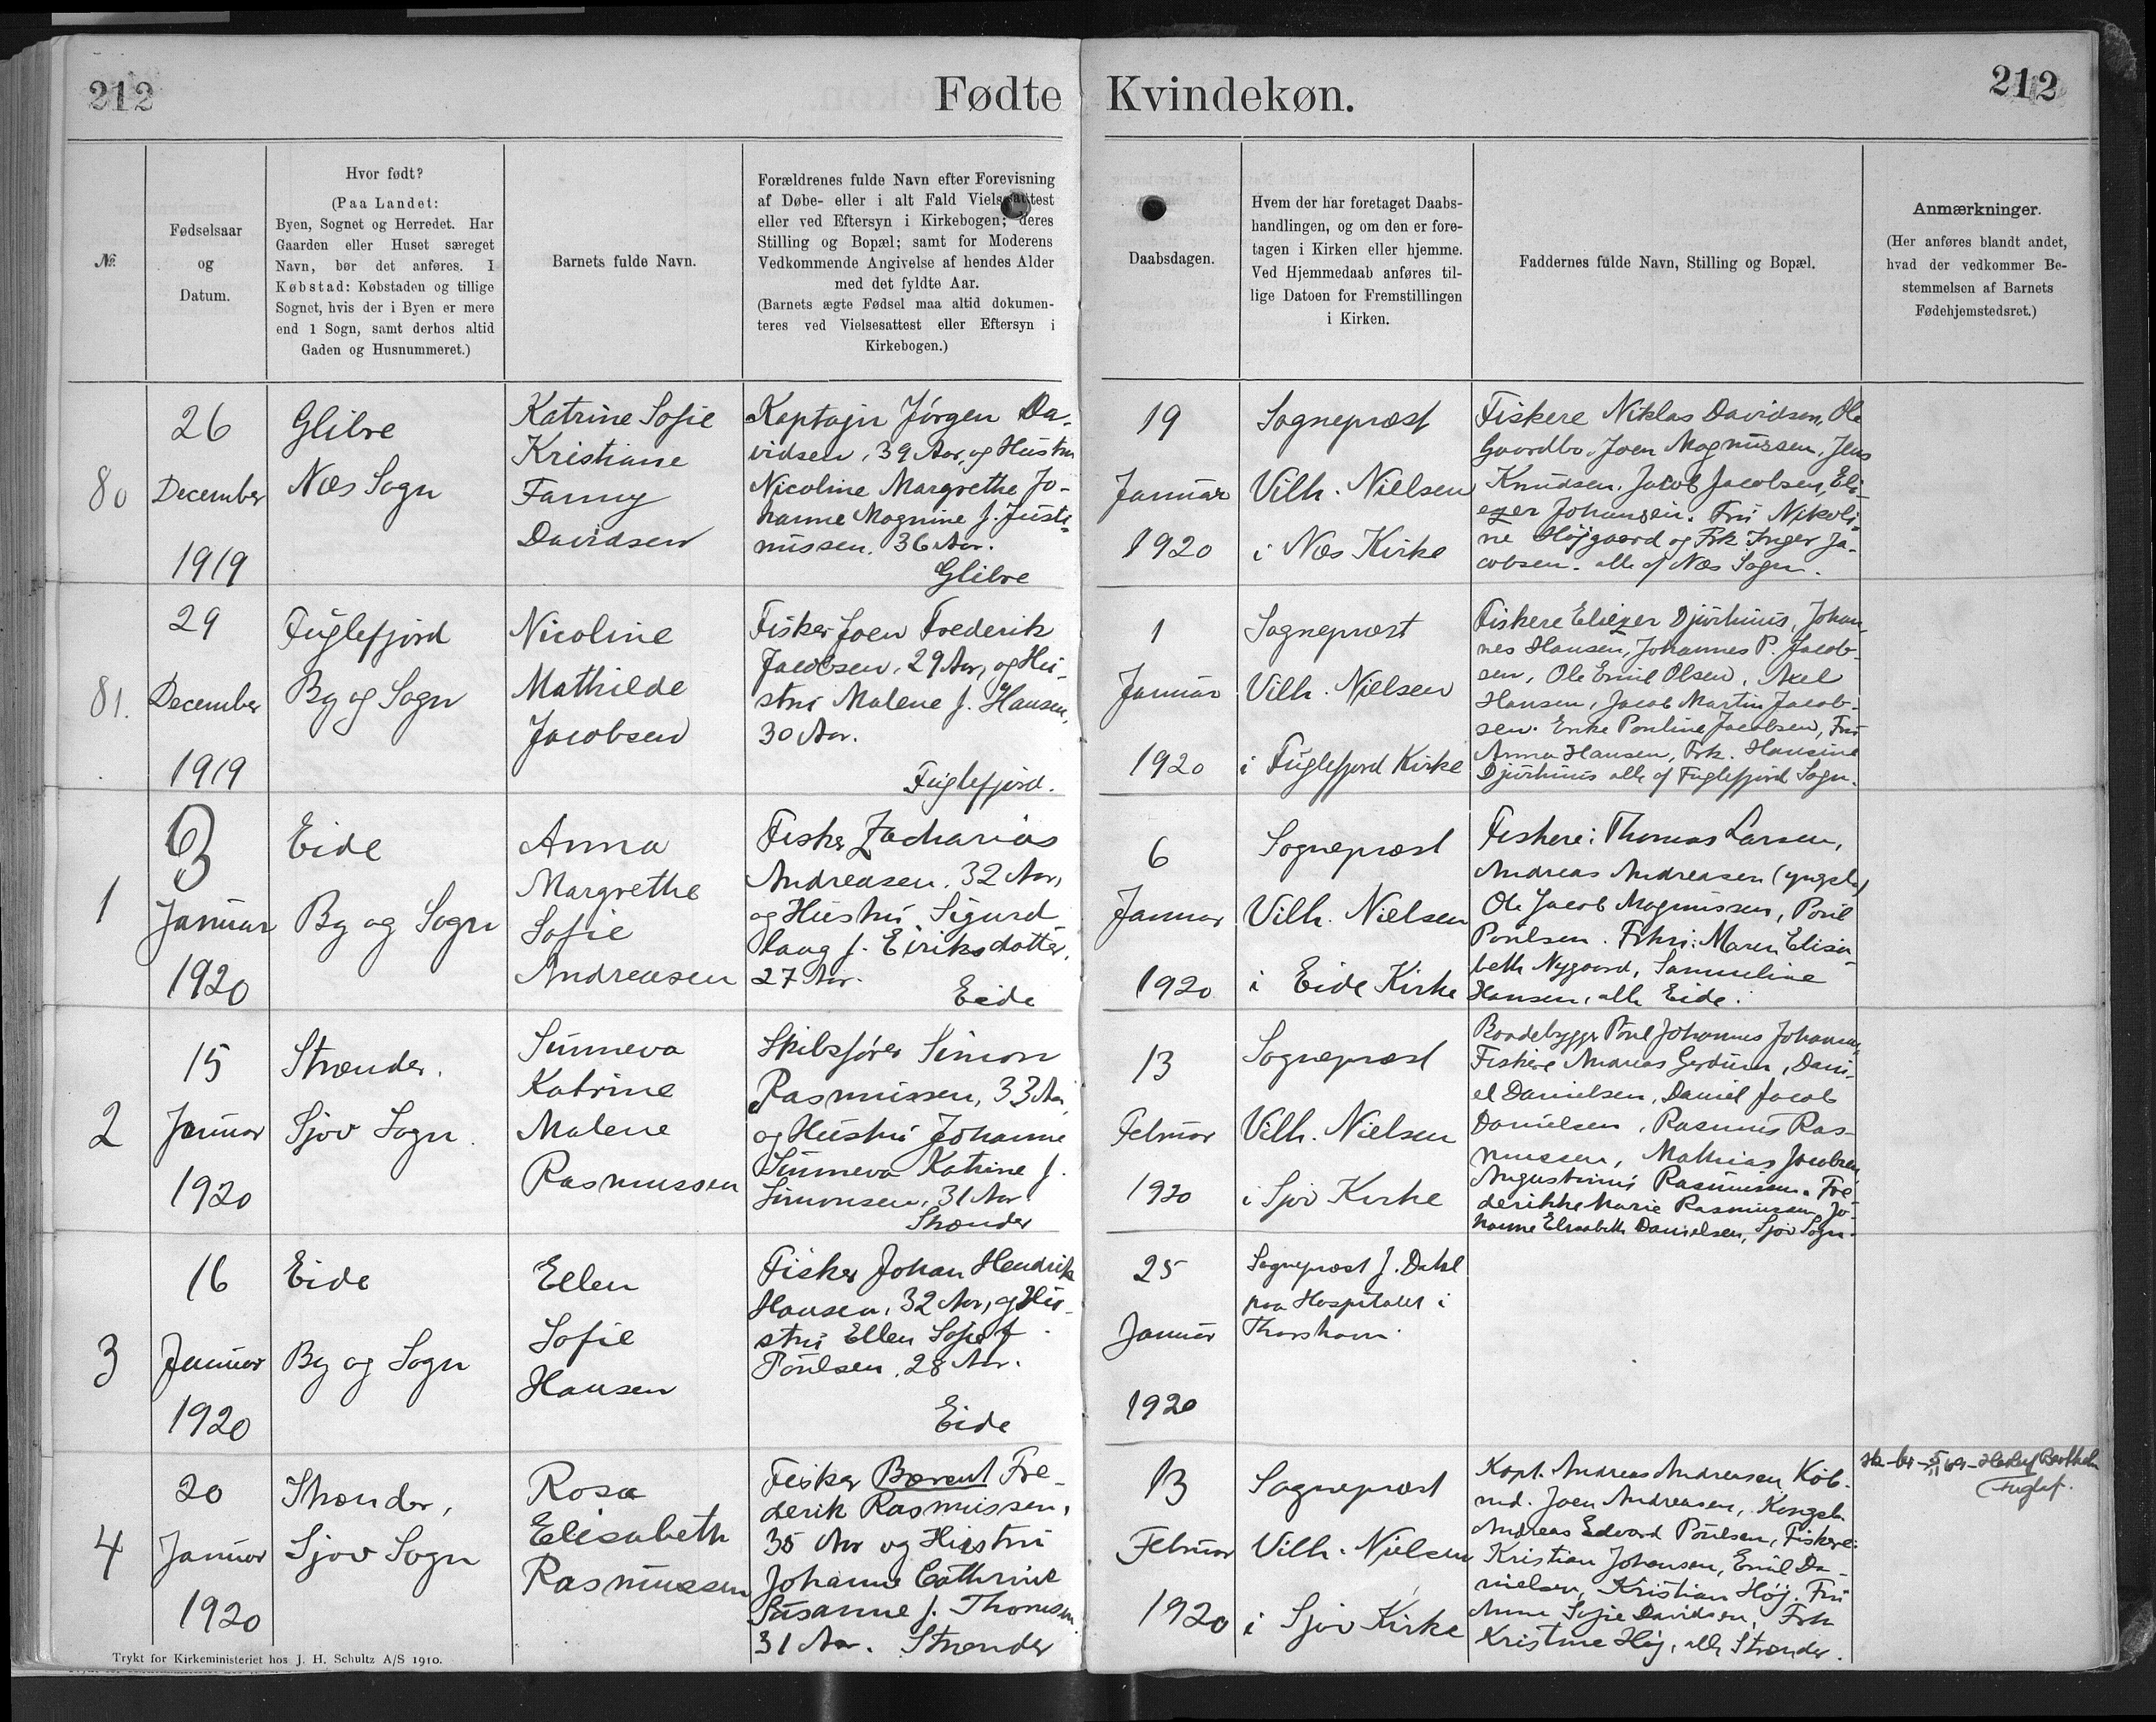 212
Fødte Kvindekøn.
212
№
Fødselsaar
og
Datum.
Hvor født?
(Paa Landet:
Byen, Sognet og Herredet. Har
Gaarden eller Huset særeget
Navn, bør det anføres. I
Købstad: Købstaden og tillige
Sognet, hvis der i Byen er mere
end 1 Sogn, samt derhos altid
Gaden og Husnummeret.)
Barnets fulde Navn.
Forældrenes fulde Navn efter Forevisning
af Døbe- eller i alt Fald Vielsesattest
eller ved Eftersyn i Kirkebogen; deres
Stilling og Bopæl; samt for Moderens
Vedkommende Angivelse af hendes Alder
med det fyldte Aar.
(Barnets ægte Fødsel maa altid dokumen-
teres ved Vielsesattest eller Eftersyn i
Kirkebogen.)
Daabsdagen.
Hvem der har foretaget Daabs-
handlingen, og om den er fore-
tagen i Kirken eller hjemme.
Ved Hjemmedaab anføres til-
lige Datoen for Fremstillingen
i Kirken.
Faddernes fulde Navn, Stilling og Bopæl.
Anmærkninger.
(Her anføres blandt andet,
hvad der vedkommer Be-
stemmelsen af Barnets
Fødehjemstedsret.)
80
26
December
1919
Glibre
Næs Sogn
Katrine Sofie
Kristiane
Fanny
Davidsen
Kaptajn Jørgen Da-
vidsen, 39 Aar, og Hustru
Nicoline Margrethe Jo-
hanne Magnine f. Justi-
nussen. 36 Aar.
Glibre
19
Januar
1920
Sognepræst
Vilh. Nielsen
i Næs Kirke
Fiskere Niklas Davidsen, Ole
Gaardbo, Joen Magnussen, Jens
Knudsen, Jacob Jacobsen, Eli-
ezer Johansen. Fru Nikoli-
ne Højgaard og Frk Inger Ja-
cobsen. alle af Næs Sogn.
81.
29
December
1919
Fuglefjord
By og Sogn
Nicoline
Mathilde
Jacobsen
Fisker Joen Frederik
Jacobsen, 29 Aar, og Hu-
stru Malene f. Hansen,
30 Aar.
Fuglefjord.
1
Januar
1920
Sognepræst
Vilh. Nielsen
i Fuglefjord Kirke
Fiskere Eliezer Djurhuus, Johan-
nes Hansen, Johannes P. Jacob-
sen, Ole Emil Olsen, Axel
Hansen, Jacob Martin Jacob-
sen. Enke Pouline Jacobsen, Fru
Anna Hansen, Frk. Hansine
Djurhuus alle af Fuglefjord Sogn.
1
Januar
1920
Eide
By og Sogn
Anna
Margrethe
Sofie
Andreasen
Fisker Zacharias
Andreasen, 32 Aar,
og Hustru Sigurd
laug f. Eiriksdotter,
27 Aar.
Eide
6
Januar
1920
Sognepræst
Vilh. Nielsen
i Eide Kirke
Fiskere: Thomas Larsen,
Andreas Andreasen (yngste)
Ole Jacob Magnussen, Poul
Poulsen. Fkn: Maren Elisa-
beth Nygaard, Sammeline
Hansen, alle Eide.
2
15
Januar
1920
Strænder.
Sjov Sogn.
Sunneva
Katrine
Malene
Rasmussen
Skibsfører Simon
Rasmussen, 33 Aar,
og Hustru Johanne
Sunneva Katrine f.
Simonsen, 31 Aar.
Strænder
13
Februar
1920
Sognepræst
Vilh. Nielsen
i Sjov Kirke
Baadebygger Poul Johannes Johansen,
Fiskere Andreas Gerdum, Dani-
el Danielsen, Daniel Jacob
Danielsen, Rasmus Ras-
mussen, Mathias Jacobsen
Augustinus Rasmussen. Fre-
derikke Marie Rasmussen, Jo-
hanne Elisabeth Danielsen, Sjov Sogn.
3
16
Januar
1920
Eide
By og Sogn
Ellen
Sofie
Hansen
Fisker Johan Hendrik
Hansen, 32 Aar, og Hu-
stru Ellen Sofie f.
Poulsen, 28 Aar.
Eide
25
Januar
1920
Sognepræst J. Dahl
paa Hospitalet i
Thorshavn.
4
20
Januar
1920
Strænder,
Sjov Sogn
Rosa
Elisabeth
Rasmussen
Fisker Bærent Fre-
derik Rasmussen,
35 Aar og Hustru
Johanne Cathrine
Susanne f. Thomsen
31 Aar. Strænder
13
Februar
1920
Sognepræst
Vilh. Nielsen
i Sjov Kirke
Kapt. Andreas Andreasen, Køb-
md. Joen Andreasen, Kongsb.
Andreas Edvard Poulsen, Fiskere:
Kristian Johansen, Emil Da-
nielsen, Kristian Høj. Fru
Anna Sofie Davidsen, Frk
Kristine Høj, alle Strænder.
Fuglef.
Trykt for Kirkeministeriet hos J. H. Schultz A/S 1910.